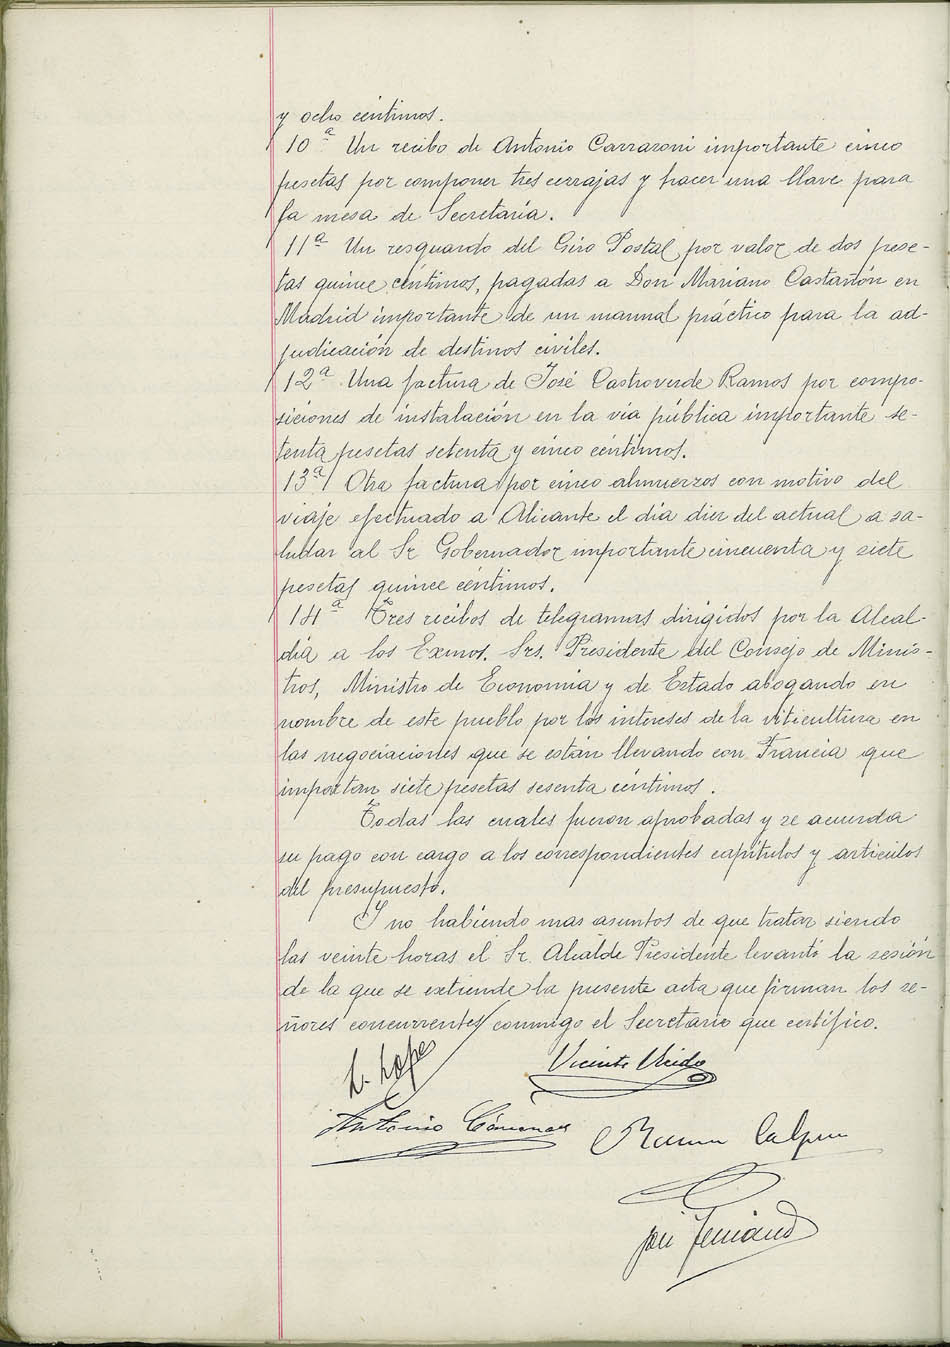 y ocho céntimos.
10ª Un recibo de Antonio Carraroni importante cinco
pesetas por componer tres cerrajas y hacer una llave para
la mesa de Secretaría.
11ª Un resguardo del Giro Postal por valor de dos pese-
tas quince céntimos, pagadas a Don Mariano Castañón en
Madrid importante de un manual práctico para la ad-
judicación de destinos civiles.
12ª Una factura de José Castroverde Ramos por compo-
siciones de instalación en la vía pública importante se-
tenta pesetas setenta y cinco céntimos.
13ª Otra factura por cinco almuerzos con motivo del
viaje efectuado a Alicante el día diez del actual a sa-
ludar al Sr Gobernador importante cincuenta y siete
pesetas quince céntimos.
14ª Tres recibos de telegramas dirigidos por la Alcal-
día a los Exmos. Srs. Presidente del Consejo de Minis-
tros, Ministro de Economía y de Estado abogando en
nombre de este pueblo por los intereses de la viticultura en
las negociaciones que se están llevando con Francia que
importan siete pesetas sesenta céntimos.
Todas las cuales fueron aprobadas y se acuerda
su pago con cargo a los correspondientes capítulos y artículos
del presupuesto.
Y no habiendo mas asuntos de que tratar siendo
las veinte horas el Sr. Alcalde Presidente levantó la sesión
de la que se extiende la presente acta que firman los se-
ñores concurrentes conmigo el Secretario que certifico.
L. Lopes
Vicente
Antonio
Ramon
José